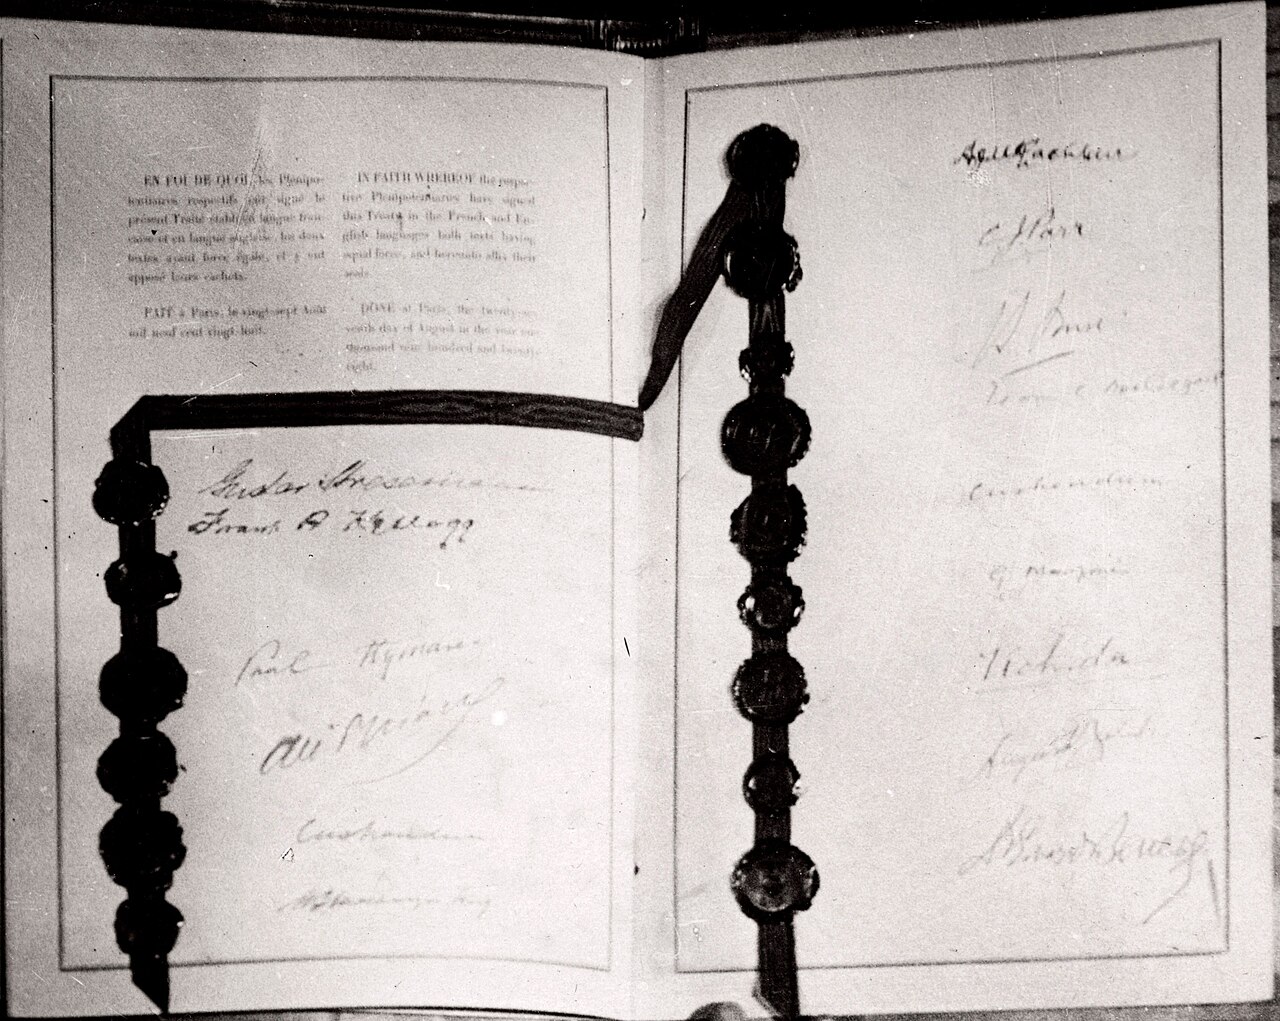 EN FOI DE QUOI, les Plénipo-
tentiaires respectifs ont signé le
présent Traité établi en langue fran-
çaise et en langue anglaise, les deux
textes ayant force égale, et y ont
apposé leurs cachets.
FAIT à Paris, le vingt-sept Août
mil neuf cent vingt huit.
IN FAITH WHEREOF the respec-
tive Plenipotentiaries have signed
this Treaty in the French and En-
glish languages both texts having
equal force, and hereunto affix their
seals.
DONE at Paris, the twenty-se-
venth day of August in the year one
thousand nine hundred and twenty-
eight.
Gustav Stresemann
Frank B Kellogg
Paul Hymans
Ari Briand
Cushendun
W L Mackenzie King
A J McLachlan
C J Parr
Cushendun
G Manzoni
Uchida
August Zaleski